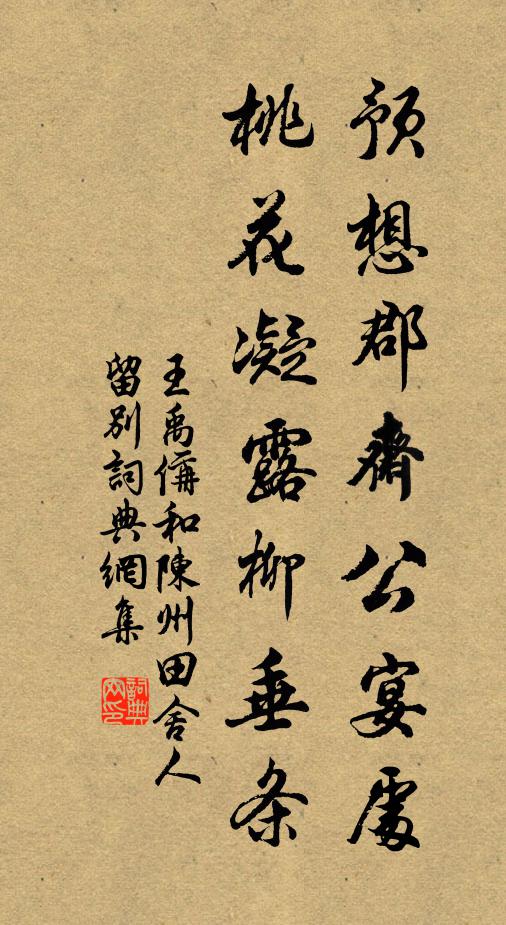 預想郡齋公宴處
桃花凝露柳垂条
王禹偁和陳州田舍人
留別詞典網集
詞典
网印